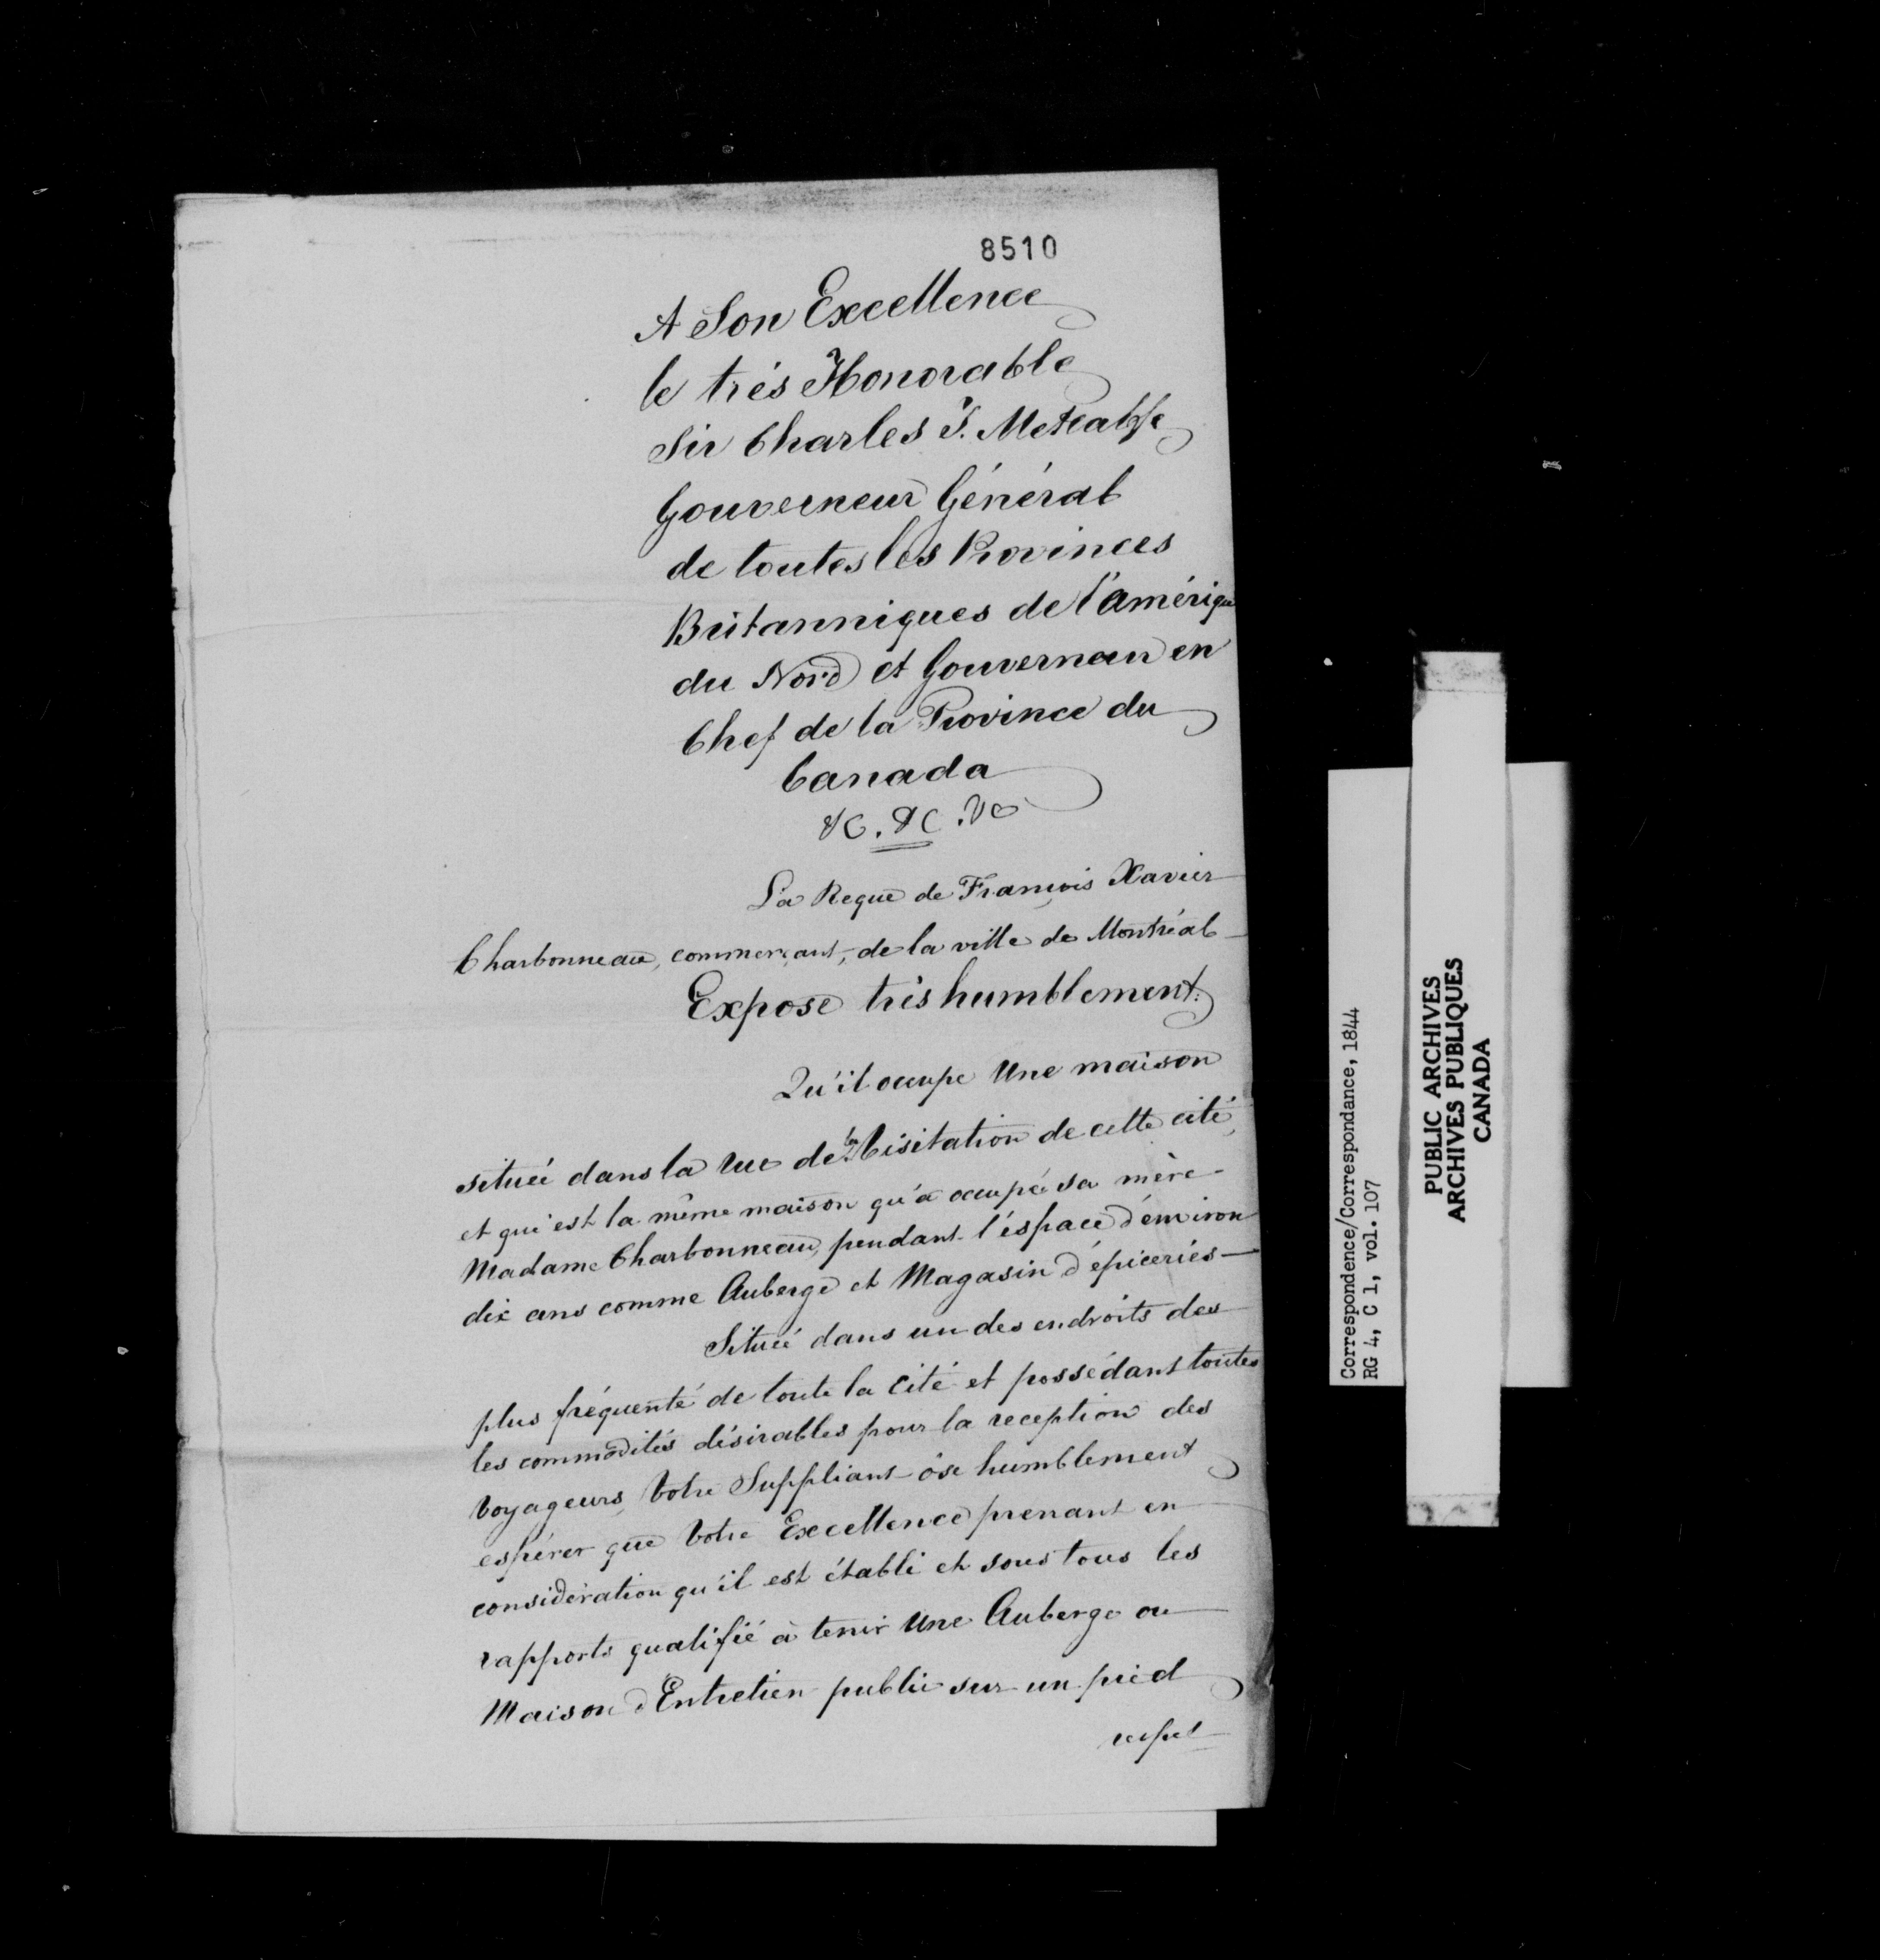 8510
A Son Excellence
le trés Honorable
Sir Charles T. Metcalfe
Gouverneur Général
de toutes les Provinces
Britanniques de l'amérique
du Nord et Gouverneur en
Chef de la Province du
Canada
&c. &c. &c
La Reque de François Xavier
Charbonneau, commerçant, de la ville de Montréal
Expose très humblement:
Qu'il occupe Une maison
située dans la rue de la Visitation de cette cité,
et qui est la même maison qu'a occupée sa mère
Madame Charbonneau, pendant l'éspace d'environ
dix ans comme Auberge et Magasin d'épiceriés
Située dans un des endroits des
plus fréquenté de toute la Cité et possédant toutes
les commodités désirables pour la reception des
Voyageurs, Votre Suppliant ôse humblement
espérer que Votre Excellence prenant en
considération qu'il est établi et sous tous les
rapports qualifié à tenir Une Auberge ou
Maison d'Entretien public sur un pied
respet
Correspondence/Correspondance, 1844
RG 4, C 1, vol. 107
PUBLIC ARCHIVES
ARCHIVES PUBLIQUES
CANADA